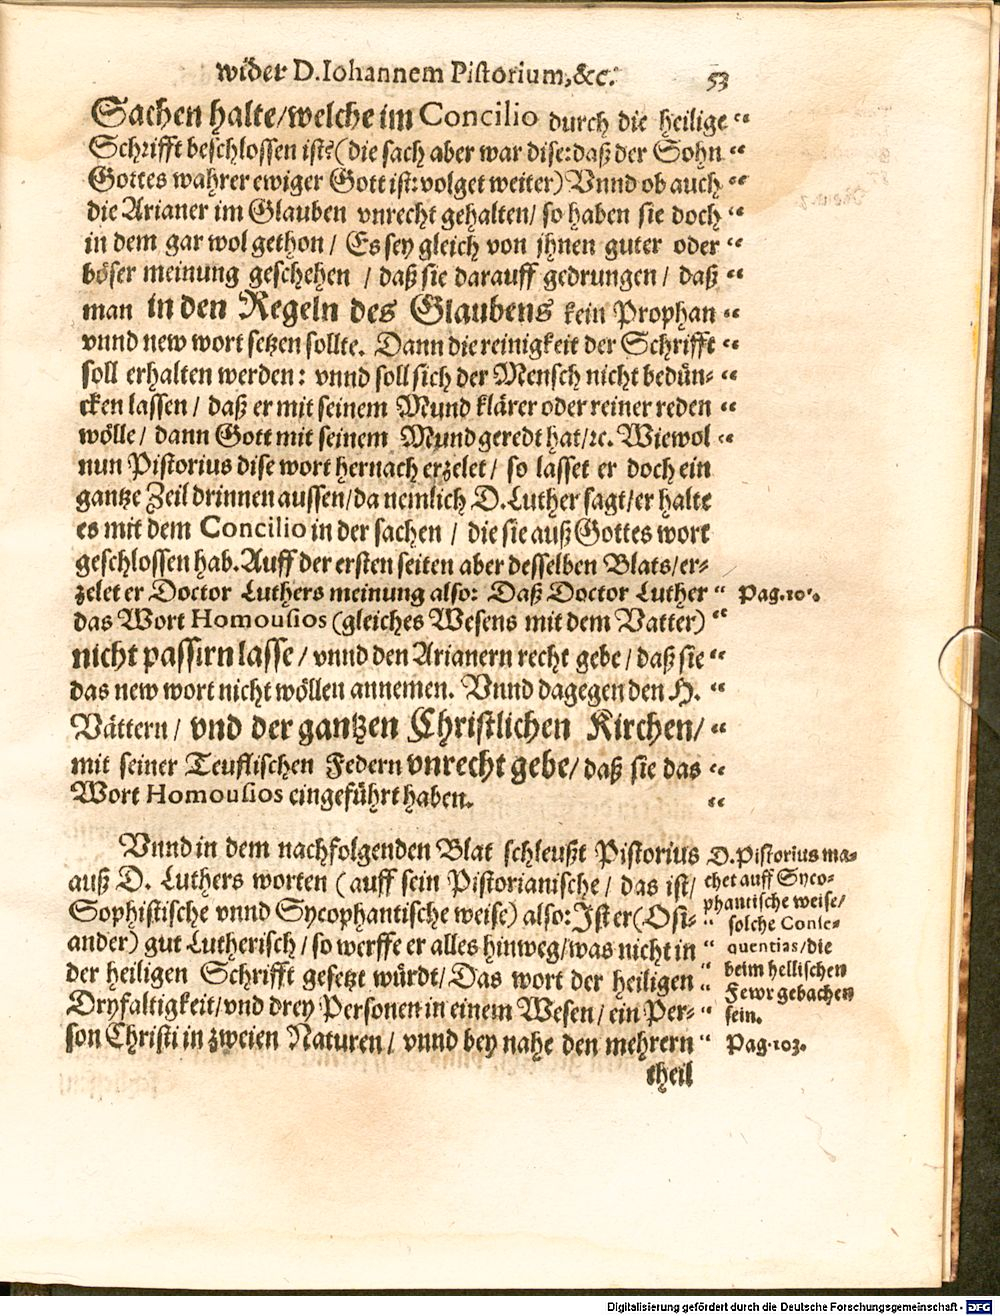 wider D. Iohannem Pistorium, &c. 53
Sachen halte/welche im Concilio durch die heilige “
Schrifft beschlossen ist?(die sach aber war dise:daß der Sohn “
Gottes wahrer ewiger Gott ist:volget weiter) Vnnd ob auch “
die Arianer im Glauben vnrecht gehalten/ so haben sie doch “
in dem gar wol gethon / Es sey gleich von jhnen guter oder “
böser meinung geschehen / daß sie darauff gedrungen / daß “
man in den Regeln des Glaubens kein Prophan “
vnnd new wort setzen sollte. Dann die reinigkeit der Schrifft “
soll erhalten werden: vnnd soll sich der Mensch nicht bedün- “
cken lassen / daß er mit seinem Mund klärer oder reiner reden “
wölle/ dann Gott mit seinem Mund geredt hat/ꝛc. Wiewol “
nun Pistorius dise wort hernach erzelet/ so lasset er doch ein
gantze Zeil drinnen aussen/da nemlich D. Luther sagt/er halte
es mit dem Concilio in der sachen / die sie auß Gottes wort
geschlossen hab. Auff der ersten seiten aber desselben Blats/er-
zelet er Doctor Luthers meinung also: Daß Doctor Luther “
das Wort Homousios (gleiches Wesens mit dem Vatter) “
nicht passirn lasse/ vnnd den Arianern recht gebe/ daß sie “
das new wort nicht wöllen annemen. Vnnd dagegen den H. “
Vättern/ vnd der gantzen Christlichen Kirchen/ “
mit seiner Teuflischen Federn vnrecht gebe/ daß sie das “
Wort Homousios eingeführt haben. “
Vnnd in dem nachfolgenden Blat schleußt Pistorius
auß D. Luthers worten (auff sein Pistorianische/ das ist/
Sophistische vnnd Sycophantische weise) also: Ist er (Osi- “
ander) gut Lutherisch/ so werffe er alles hinweg/was nicht in “
der heiligen Schrifft gesetzt würdt/ Das wort der heiligen “
Dryfaltigkeit/vnd drey Personen in einem Wesen/ ein Per- “
son Christi in zweien Naturen/ vnnd bey nahe den mehrern “
theil
Pag.
D. Pistorius ma-
chet auff Syco-
phantische weise/
solche Conse-
quentias/die
beim hellischen
Fewr gebachen
sein.
Pag. 103.
Digitalisierung gefördert durch die Deutsche Forschungsgemeinschaft - DFG